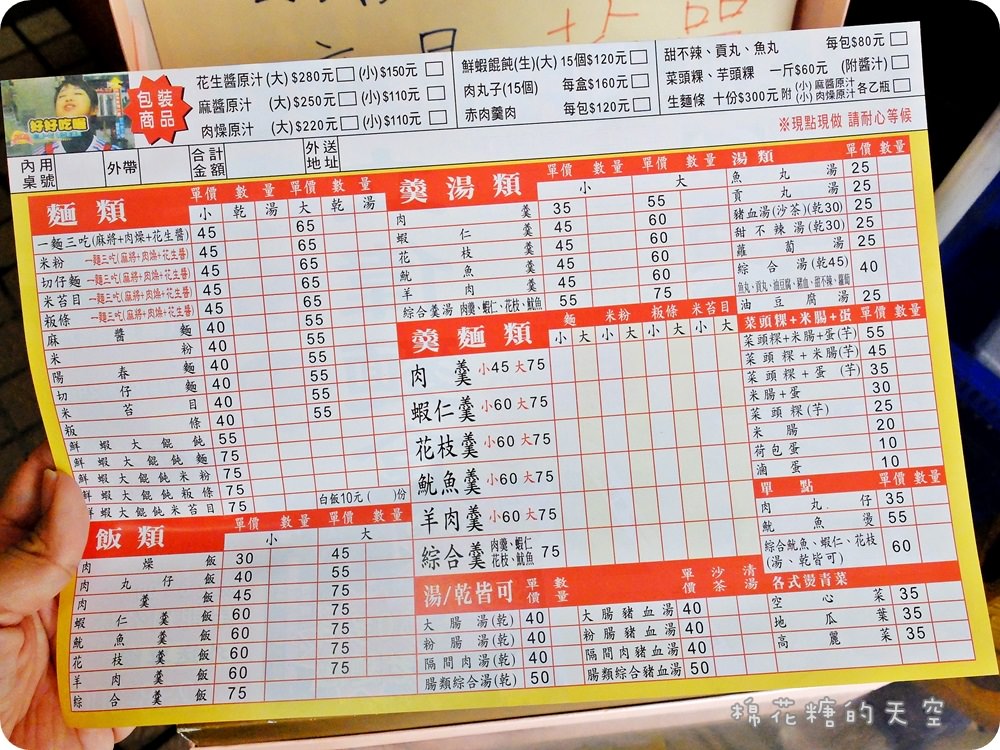 好好吃喔
包裝商品
花生醬原汁(大)$280元 (小)$150元
麻醬原汁 (大)$250元 (小)$110元
肉燥原汁 (大)$220元 (小)$110元
鮮蝦餛飩(生)(大)15個$120元
肉丸子(15個) 每盒$160元
赤肉羹肉 每包$120元
甜不辣、貢丸、魚丸 每包$80元
菜頭粿、芋頭粿 一斤$60元 (附醬汁)
生麵條 十份$300元 附 (小)麻醬原汁 (小)肉燥原汁 各乙瓶
※現點現做 請耐心等候
內用桌號 外帶 合計金額 外送地址
麵類 單價 數量 單價 數量
小 乾 湯 大 乾 湯
一麵三吃(麻將+肉燥+花生醬) 45 65
米粉 一麵三吃(麻將+肉燥+花生醬) 45 65
切仔麵 一麵三吃(麻將+肉燥+花生醬) 45 65
米苔目 一麵三吃(麻將+肉燥+花生醬) 45 65
粄條 一麵三吃(麻將+肉燥+花生醬) 45 65
麻醬麵 40 55
米粉 40 55
陽春麵 40 55
切仔麵 40 55
米苔目 40 55
粄條 40 55
鮮蝦大餛飩 55
鮮蝦大餛飩麵 75
鮮蝦大餛飩米粉 75
鮮蝦大餛飩粄條 75
鮮蝦大餛飩米苔目 75
白飯10元( )份
飯類 單價 數量 單價 數量
小 大
肉燥飯 30 45
肉丸仔飯 40 55
肉羹飯 45 75
蝦仁羹飯 60 75
魷魚羹飯 60 75
花枝羹飯 60 75
羊肉羹飯 60 75
綜合羹飯 75
羹湯類 單價 數量 單價 數量
小 大
肉羹 35 55
蝦仁羹 45 60
花枝羹 45 60
魷魚羹 45 60
羊肉羹 45 60
綜合羹湯 肉羹、蝦仁、花枝、魷魚 55 75
羹麵類 麵 米粉 粄條 米苔目
小 大 小 大 小 大 小 大
肉羹 小45 大75
蝦仁羹 小60 大75
花枝羹 小60 大75
魷魚羹 小60 大75
羊肉羹 小60 大75
綜合羹 肉羹、蝦仁 花枝、魷魚 75
湯/乾皆可 單價 數量 單價 沙茶 清湯
大腸湯(乾) 40 大腸豬血湯 40
粉腸湯(乾) 40 粉腸豬血湯 40
隔間肉湯(乾) 40 隔間肉豬血湯 40
腸類綜合湯(乾) 50 腸類綜合豬血湯 50
湯類 單價 數量
魚丸湯 25
貢丸湯 25
豬血湯(沙茶)(乾30) 25
甜不辣湯(乾30) 25
蘿蔔湯 25
綜合湯(乾45) 40
魚丸、貢丸、油豆腐、豬血、甜不辣、蘿蔔
油豆腐湯 25
菜頭粿+米腸+蛋 單價 數量
菜頭粿+米腸+蛋(芋) 55
菜頭粿+米腸(芋) 45
菜頭粿+蛋(芋) 35
米腸+蛋 30
菜頭粿(芋) 25
米腸 20
荷包蛋 10
滷蛋 10
單點 單價 數量
肉丸仔 35
魷魚燙 55
綜合魷魚、蝦仁、花枝(湯、乾皆可) 60
各式燙青菜
空心菜 35
地瓜葉 35
高麗菜 35
棉花糖的天空